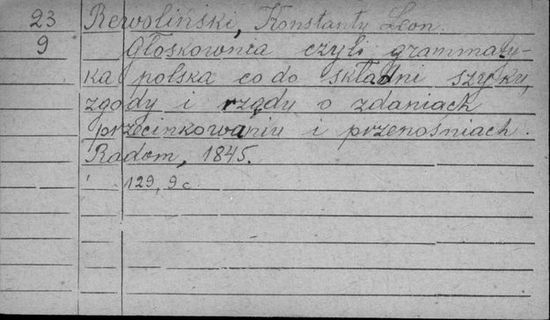 23 Rewoliński, Konstanty Leon.
9 Głoskownia czyli grammaty-
ka polska co do składni szyku,
zgody i rządu o zdaniach
przecinkowaniu i przenośniach.
Radom, 1845.
129, 9 c.